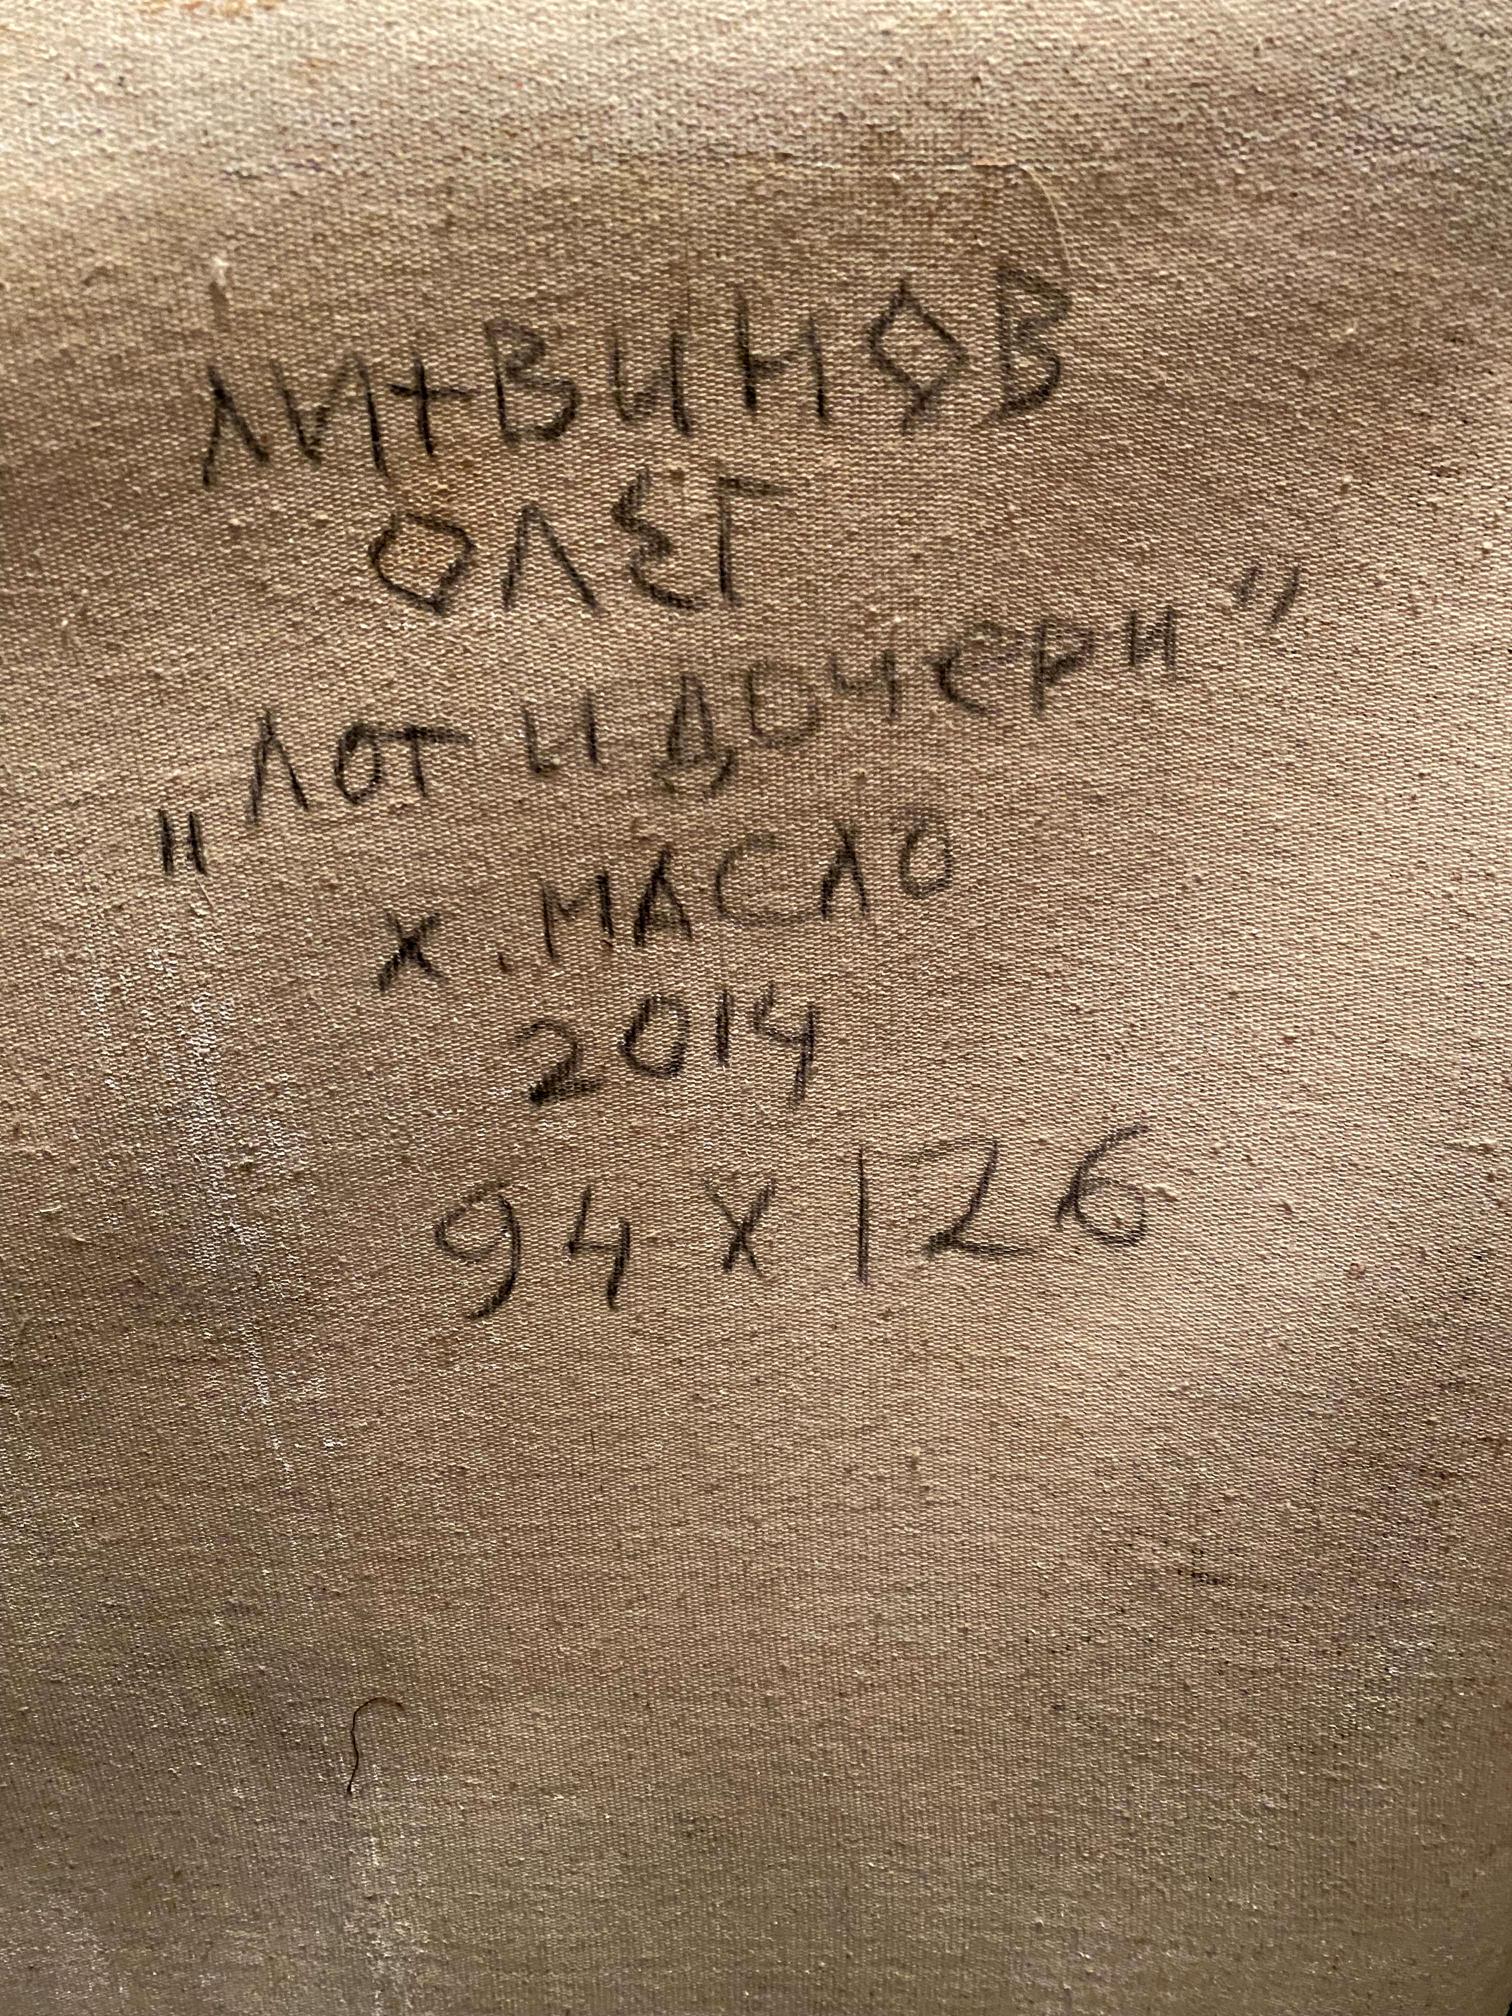 ЛИТВИНОВ
ОЛЕГ
„ЛОТ И ДОЧЕРИ”
Х. МАСЛО
2014
94 х 126